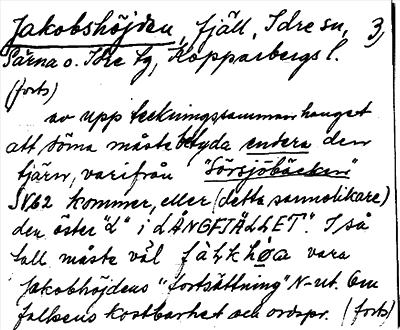 Jakobshöjden, fjäll, Idre sn, 3,
Särna o. Idre tg, Kopparbergs l.
(forts)
av uppteckningssammanhanget
att döma måste betyda endera den
tjärn, varifrån "Sörsjöbäcken"
SV62 kommer, eller (detta sannolikare)
den öster "L" i LÅNGFJÄLLET". I så
fall måste väl vara
Jakobhöjdens "fortsättning" N-ut. Om
falkens kostbarhet och ordspr. (forts)